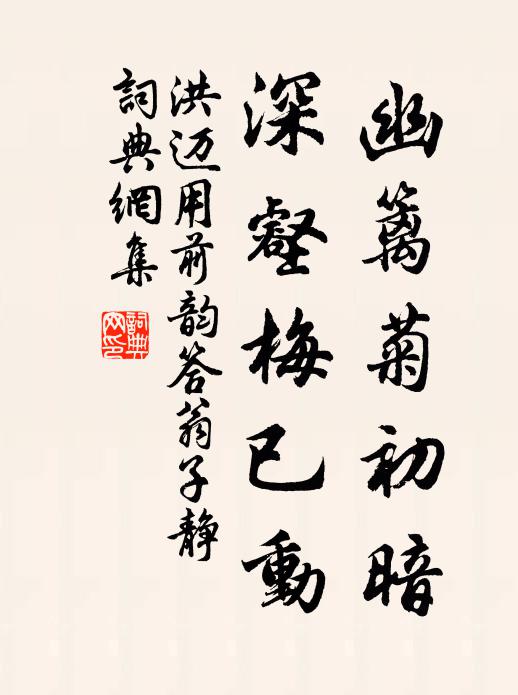 幽篱菊初暗
深壑梅已動
洪迈用前韵答翁子静
詞典網集
詞典
网印